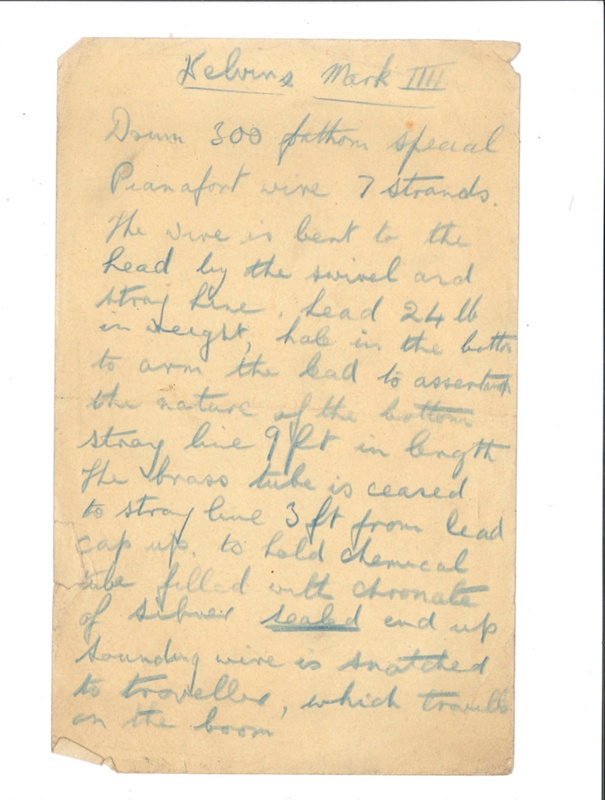 Kelvins Mark IIII
Drum 300 fathom special
Pianafort wire 7 strands.
The wire is bent to the
head by the swivel and
stray line. head 24 lb
in weight, hole in the bottom
to arm the lead to assertain
the nature of the bottom
stray line 9 ft in length
The brass tube is ceased
to stray line 3 ft from lead
cap up. to hold chemical
tube filled with chromate
of silver sealed end up
Sounding wire is snatched
to traveller, which travells
on the boom